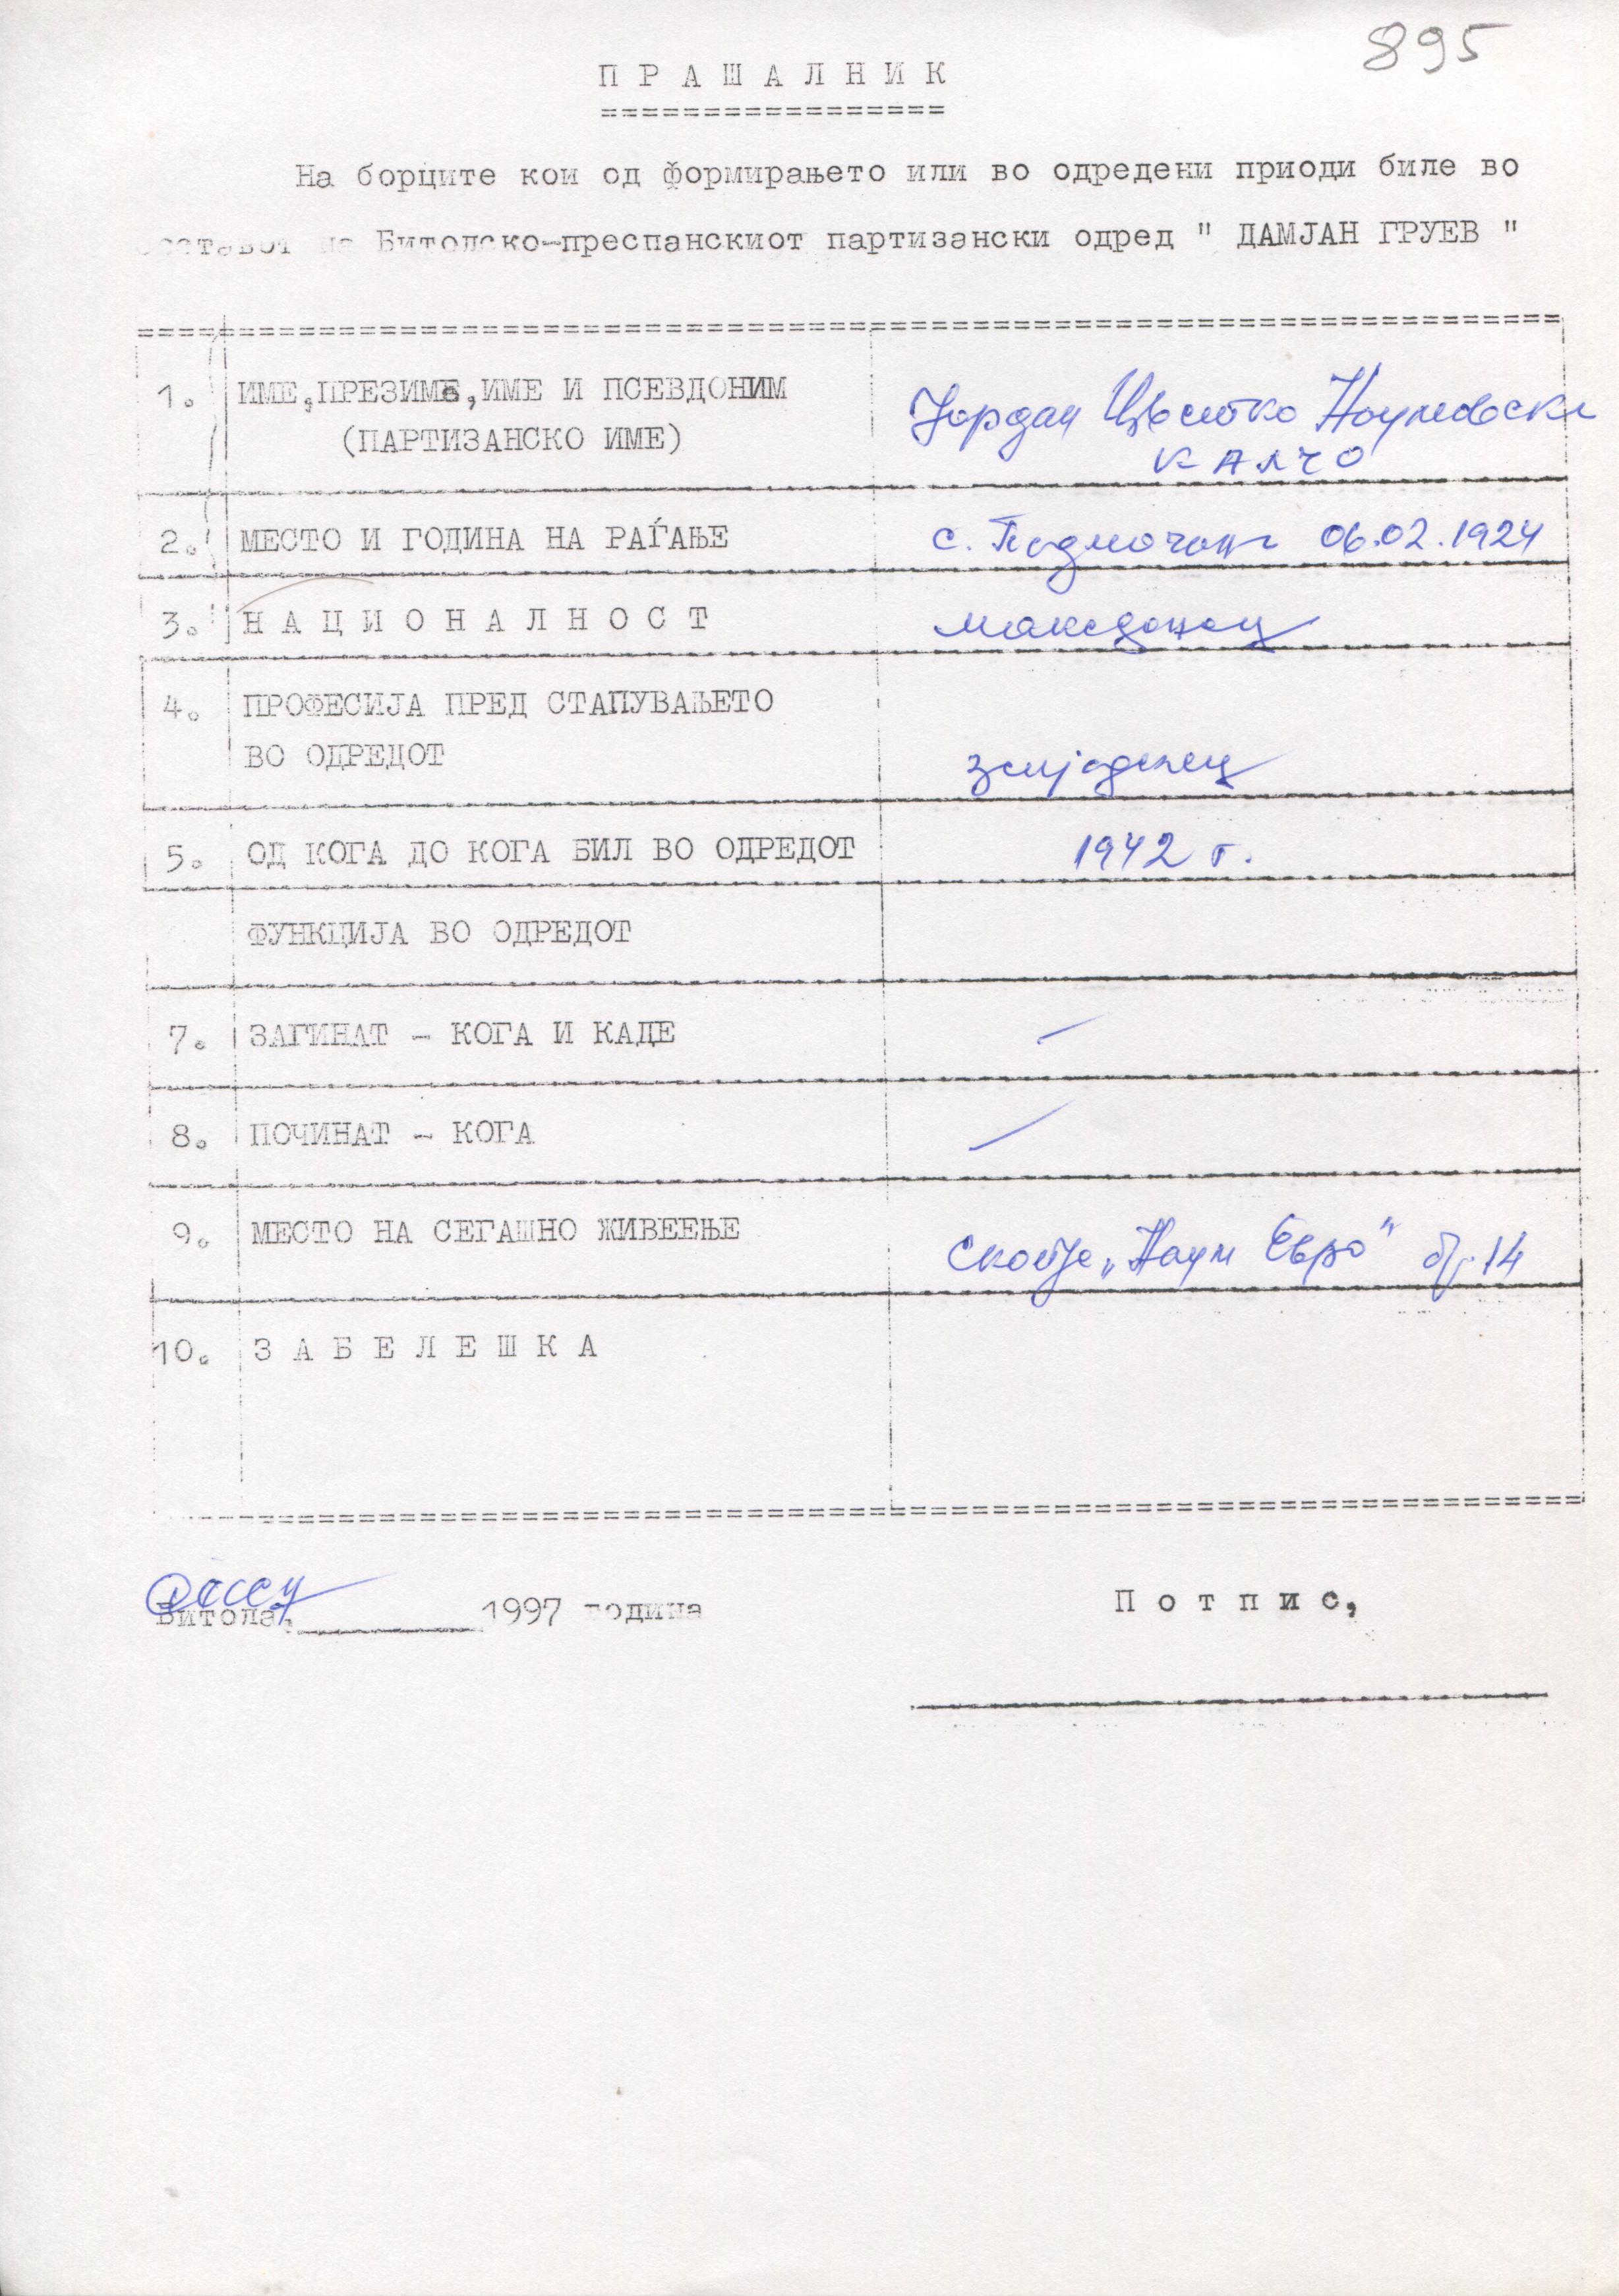 895
П Р А Ш А Л Н И К
=================
На борците кои од формирањето или во одредени приоди биле во
составот на Битолско-преспанскиот партизански одред " ДАМЈАН ГРУЕВ "
1. ИМЕ,ПРЕЗИМЕ,ИМЕ И ПСЕВДОНИМ
(ПАРТИЗАНСКО ИМЕ)
Јордан Цветко Наумовски
КАЛЧО
2. МЕСТО И ГОДИНА НА РАЃАЊЕ с. Подмочани 06.02.1924
3. Н А Ц И О Н А Л Н О С Т македонец
4. ПРОФЕСИЈА ПРЕД СТАПУВАЊЕТО
ВО ОДРЕДОТ земјоделец
5. ОД КОГА ДО КОГА БИЛ ВО ОДРЕДОТ 1942 г.
ФУНКЦИЈА ВО ОДРЕДОТ
7. ЗАГИНАТ - КОГА И КАДЕ /
8. ПОЧИНАТ - КОГА /
9. МЕСТО НА СЕГАШНО ЖИВЕЕЊЕ Скопје „Наум Евро" бр. 14
10. З А Б Е Л Е Ш К А
Ресен
Битола, 1997 година
П о т п и с,